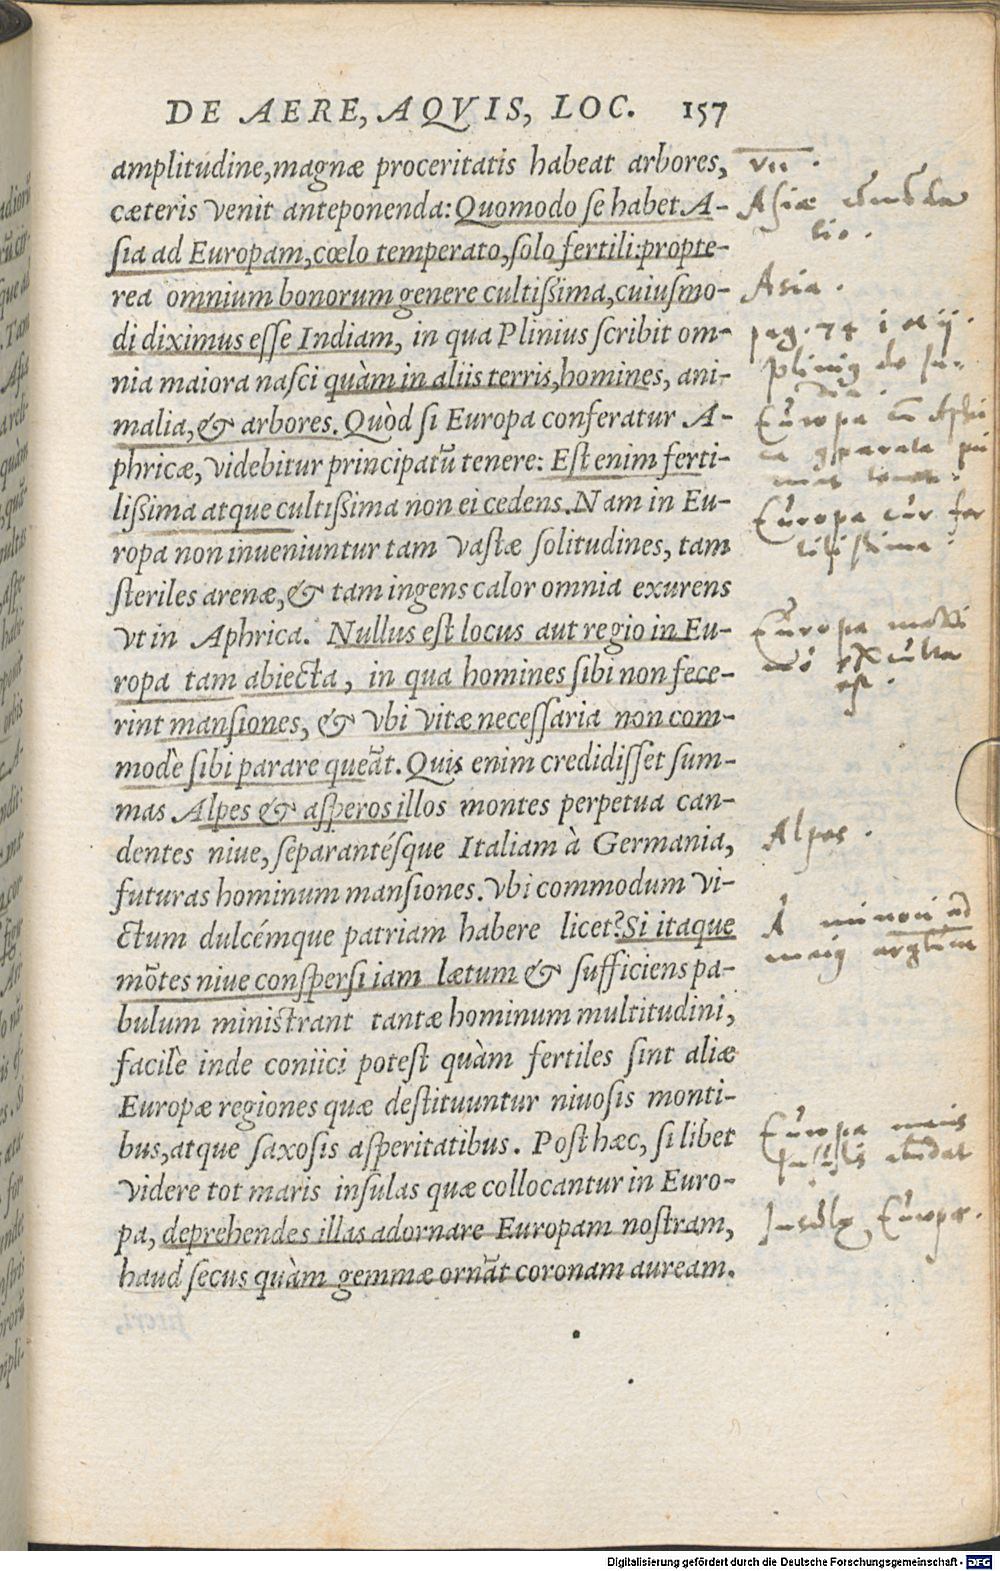 DE AERE, AQVIS, LOC. 157
amplitudine, magnæ proceritatis habeat arbores,
cæteris venit anteponenda: Quomodo se habet A-
sia ad Europam, cœlo temperato, solo fertili: propte-
rea omnium bonorum genere cultissima, cuiusmo-
di diximus esse Indiam, in qua Plinius scribit om-
nia maiora nasci quàm in aliis terris, homines, ani-
malia, & arbores. Quòd si Europa conferatur A-
phricæ, videbitur principatũ tenere: Est enim ferti-
lissima atque cultissima non ei cedens. Nam in Eu-
ropa non inueniuntur tam vastæ solitudines, tam
steriles arenæ, & tam ingens calor omnia exurens
vt in Aphrica. Nullus est locus aut regio in Eu-
ropa tam abiecta, in qua homines sibi non fece-
rint mansiones, & vbi vitæ necessaria non com-
modè sibi parare queãt. Quis enim credidisset sum-
mas Alpes & asperos illos montes perpetua can-
dentes niue, separantésque Italiam à Germania,
futuras hominum mansiones. vbi commodum vi-
ctum dulcémque patriam habere licet? Si itaque
mõtes niue conspersi iam lætum & sufficiens pa-
bulum ministrant tantæ hominum multitudini,
facilè inde coniici potest quàm fertiles sint aliæ
Europæ regiones quæ destituuntur niuosis monti-
bus, atque saxosis asperitatibus. Post hæc, si libet
videre tot maris insulas quæ collocantur in Euro-
pa, deprehendes illas adornare Europam nostram,
haud secus quàm gemmæ ornãt coronam auream.
vii.
Asiæ
Asia.
pag. 74
Europa
Europa cur fer
tilissima.
Europa
est.
Alpes.
A minori ad
Europa
Insulæ Europæ.
Digitalisierung gefördert durch die Deutsche Forschungsgemeinschaft - DFG